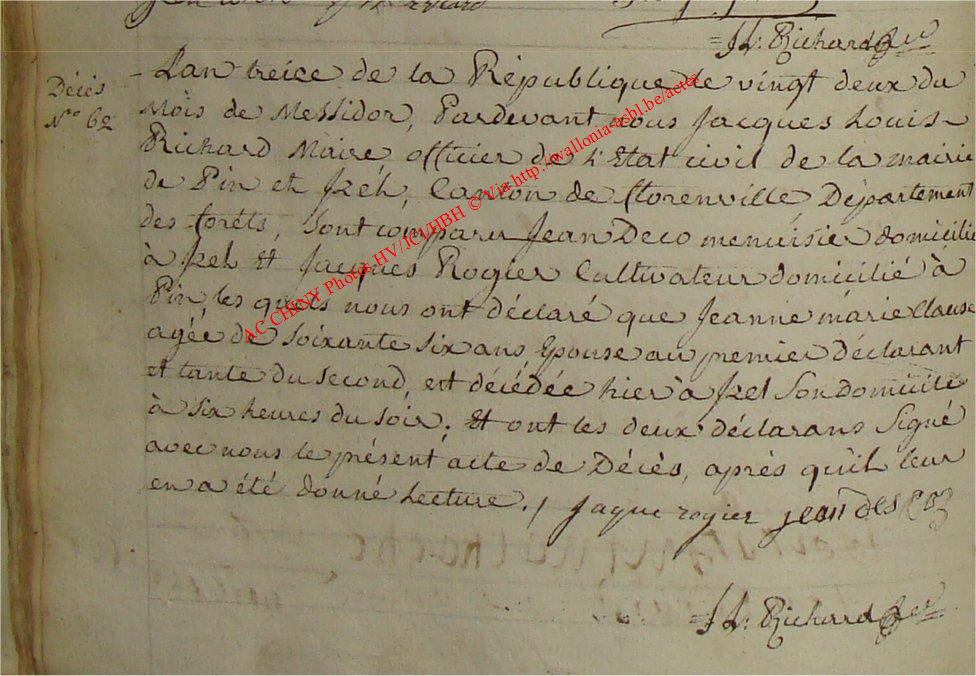 =J L: Richard
Décès
N° 62
- Lan treize de la République le vingt deux du
Mois de Messidor, Pardevant nous Jacques Louis
Richard Maire officier de L'Etat civil de la mairie
de Pin et Izel, Canton de florenville Département
des forêts, Sont comparu Jean Deco menuisier domicilié
à Izel Et Jacques Rogier Cultivateur domicilié à
Pin les quels nous ont déclaré que Jeanne marie Clause
agée de Soixante six ans, Epouse au premier déclarant
et tante du second, est décédée hier à Izel Son domicile
à Six heures du soir; Et ont les deux déclarans Signé
avec nous le présent acte de Décès, après qu'il leur
en a été donné Lecture./ Jaque rogier jean des
=J L: Richard
AC CHINY Photos HV/JCV/HBH © Via http://wallonia-asbl.be/actes